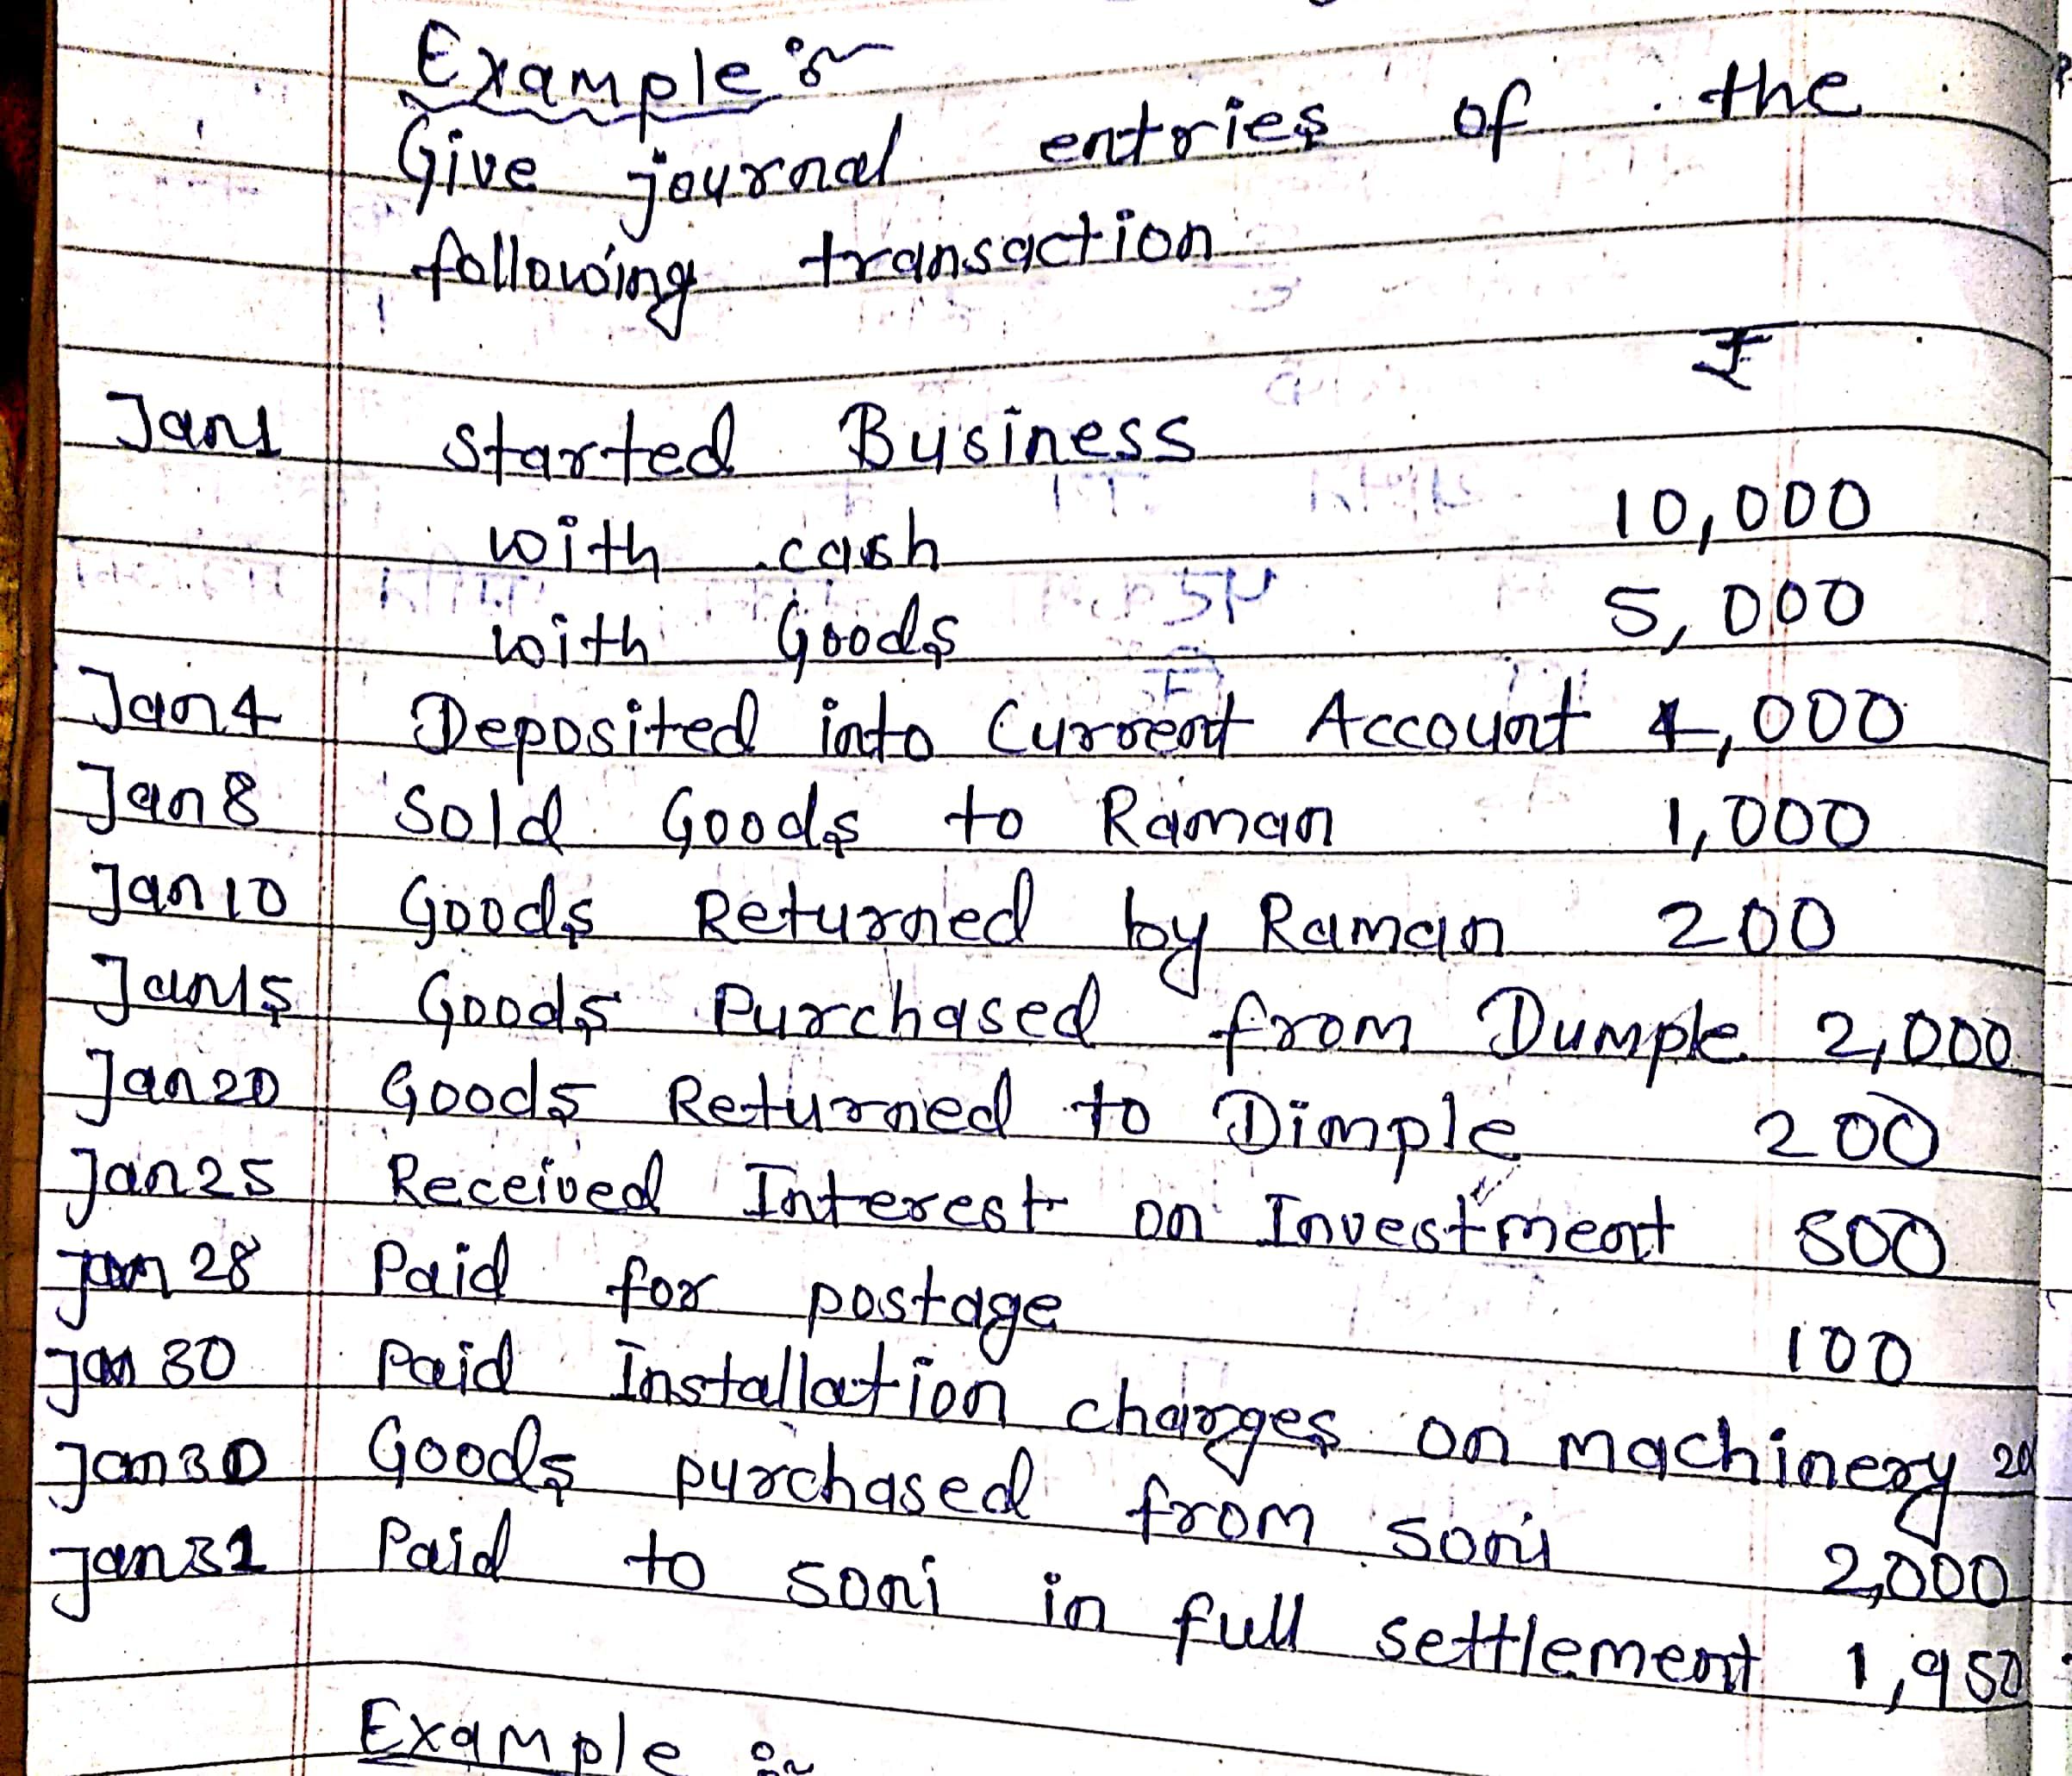 Example :-
Give journal entries of the
following transaction
₹
Jan 1 Started Business
with cash 10,000
with Goods 5,000
Jan 4 Deposited into Current Account 4,000
Jan 8 Sold Goods to Raman 1,000
Jan 10 Goods Returned by Raman 200
Jan 15 Goods Purchased from Dumple 2,000
Jan 20 Goods Returned to Dimple 200
Jan 25 Received Interest on Investment 500
Jan 28 Paid for postage 100
Jan 30 Paid Installation charges on machinery
Jan 30 Goods purchased from Soni 2,000
Jan 31 Paid to Soni in full settlement 1,950
Example :-